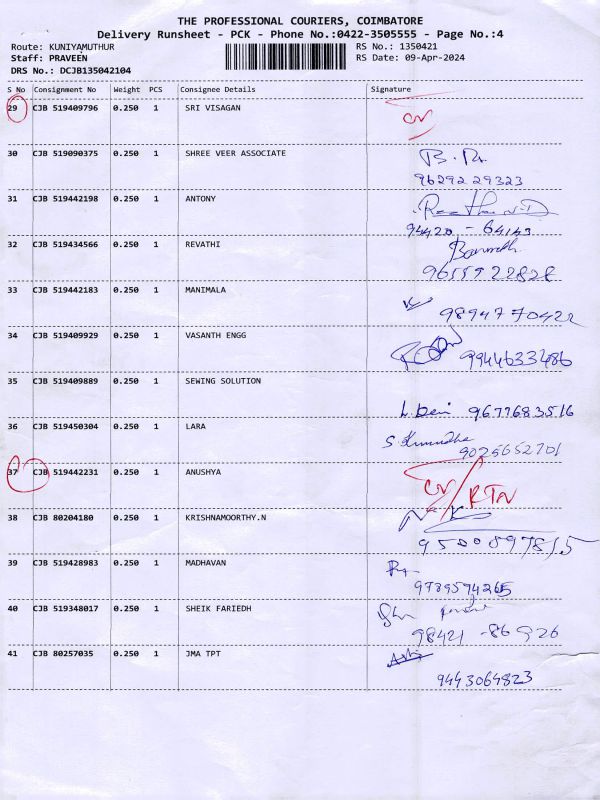 THE PROFESSIONAL COURIERS, COIMBATORE
Delivery Runsheet - PCK - Phone No.:0422-3505555 - Page No.:4
Route: KUNIYAMUTHUR RS No.: 1350421
Staff: PRAVEEN RS Date: 09-Apr-2024
DRS No.: DCJB135042104
S No Consignment No Weight PCS Consignee Details Signature
29 CJB 519409796 0.250 1 SRI VISAGAN
30 CJB 519090375 0.250 1 SHREE VEER ASSOCIATE
96292 29323
31 CJB 519442198 0.250 1 ANTONY
94420 - 64143
32 CJB 519434566 0.250 1 REVATHI
9655922828
33 CJB 519442183 0.250 1 MANIMALA
9894770422
34 CJB 519409929 0.250 1 VASANTH ENGG
9944633486
35 CJB 519409889 0.250 1 SEWING SOLUTION
L. Devi 9677683516
36 CJB 519450304 0.250 1 LARA
9025652701
37 CJB 519442231 0.250 1 ANUSHYA
RTN
38 CJB 80204180 0.250 1 KRISHNAMOORTHY.N
9500897815
39 CJB 519428983 0.250 1 MADHAVAN
9789594265
40 CJB 519348017 0.250 1 SHEIK FARIEDH
98421 - 86926
41 CJB 80257035 0.250 1 JMA TPT
9443064823